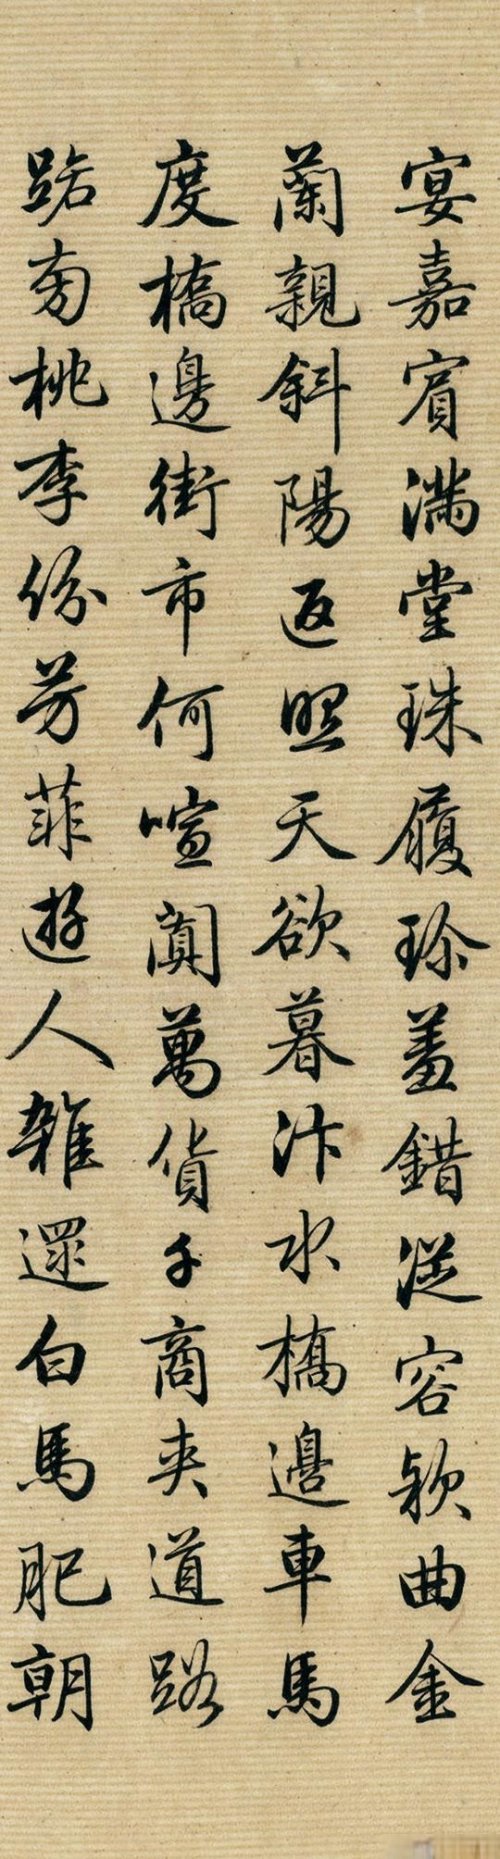 宴嘉賓滿堂珠履珍羞錯從容款曲金
蘭親斜陽返照天欲暮汴水橋邊車馬
度橋邊街市何喧闐萬貨千商夾道路
路旁桃李份芳菲遊人雜遝白馬肥朝